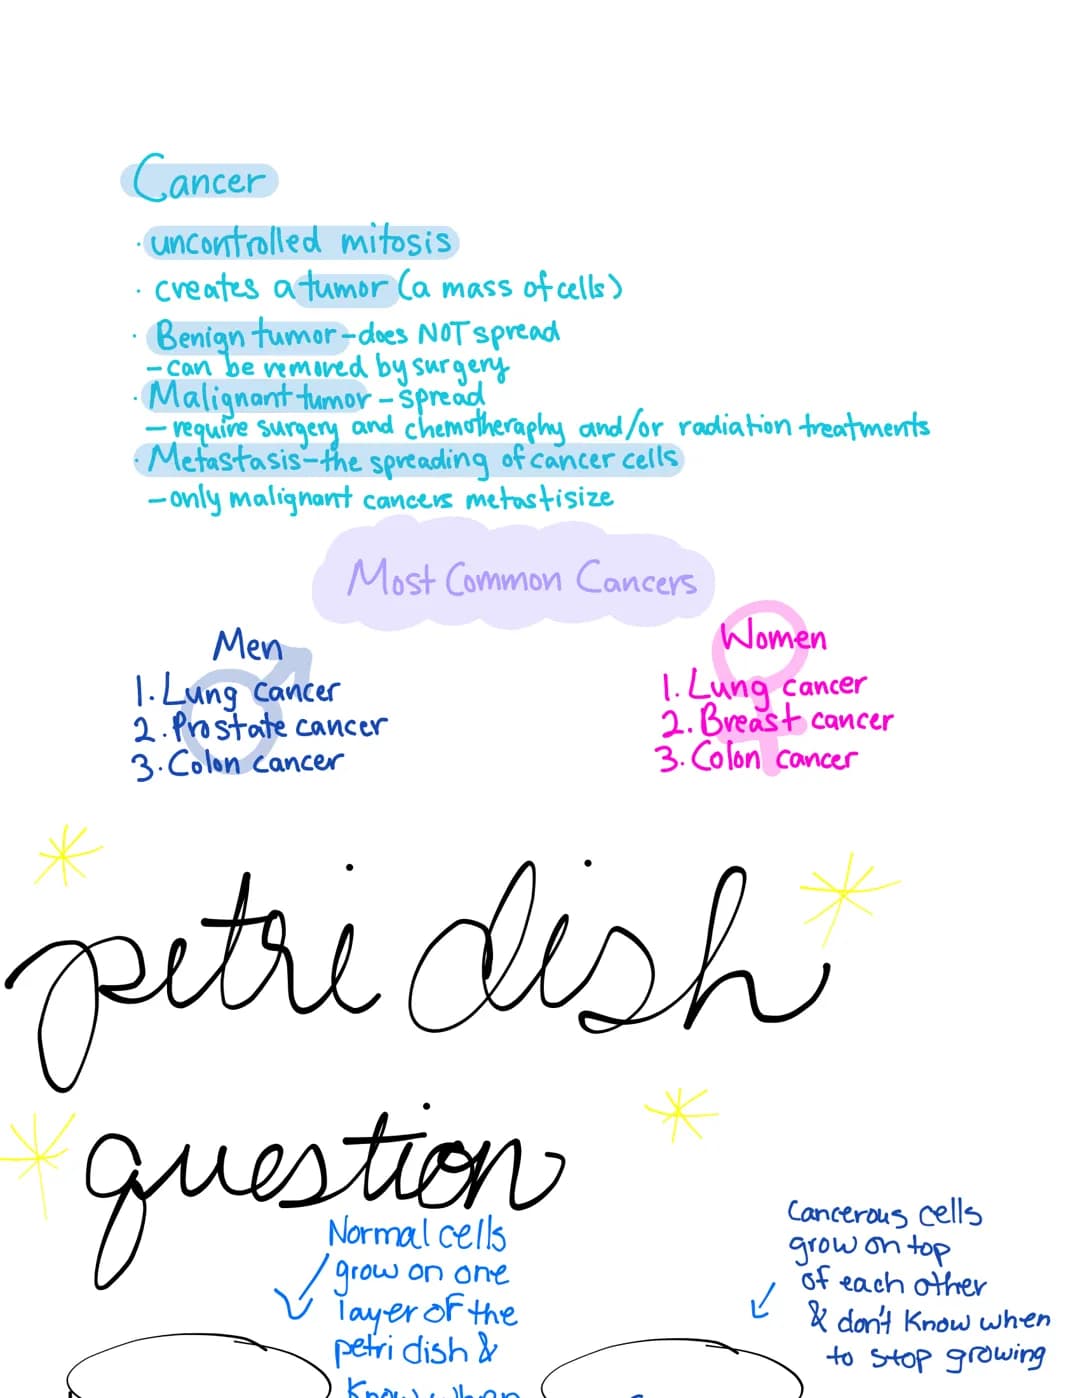 Cancer
· uncontrolled mitosis
· creates a tumor (a mass of cells)
· Benign tumor - does NOT spread
- can be removed by surgery
· Malignant tumor - spread
- require surgery and chemotheraphy and/or radiation treatments
· Metastasis - the spreading of cancer cells
- only malignant cancers metastisize
Most Common Cancers
Men
1. Lung cancer
2. Prostate cancer
3. Colon cancer
Women
1. Lung cancer
2. Breast cancer
3. Colon cancer
petri dish
question
Normal cells
grow on one
layer of the
petri dish &
know when
Cancerous cells
grow on top
of each other
& don't know when
to stop growing